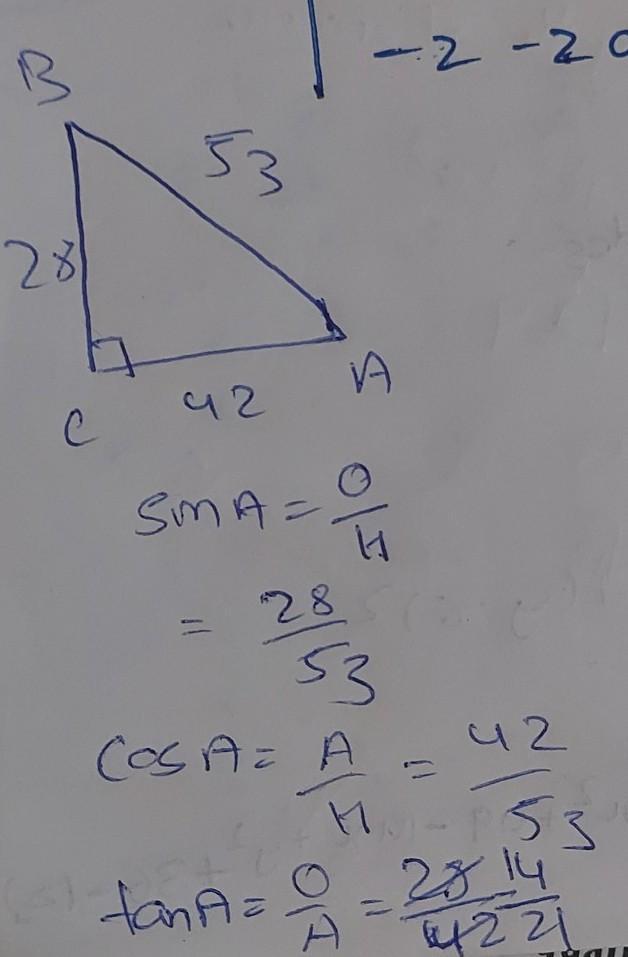 -2 -20
B
53
28
42
A
C
sin A = O/H
= 28/53
cos A = A/H = 42/53
tan A = O/A = 28/42 14/21